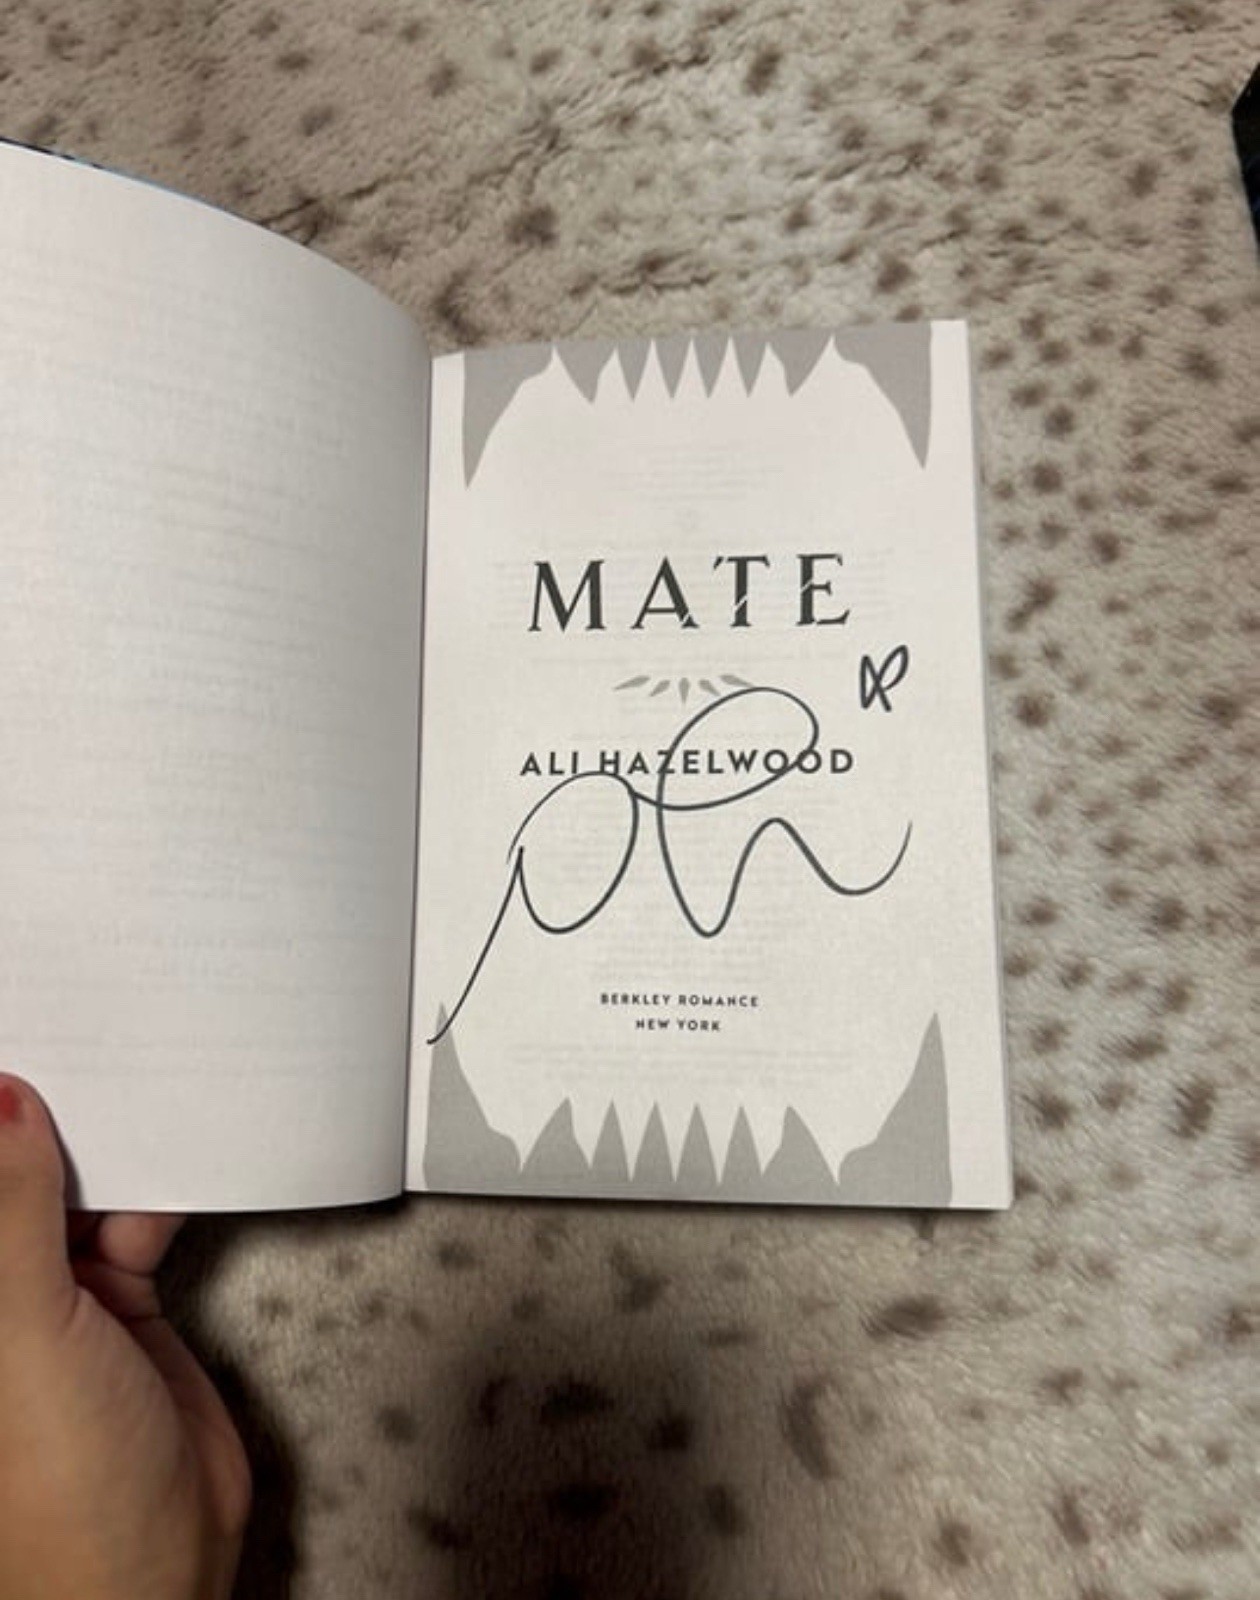 MATE
ALI HAZELWOOD
BERKLEY ROMANCE
NEW YORK